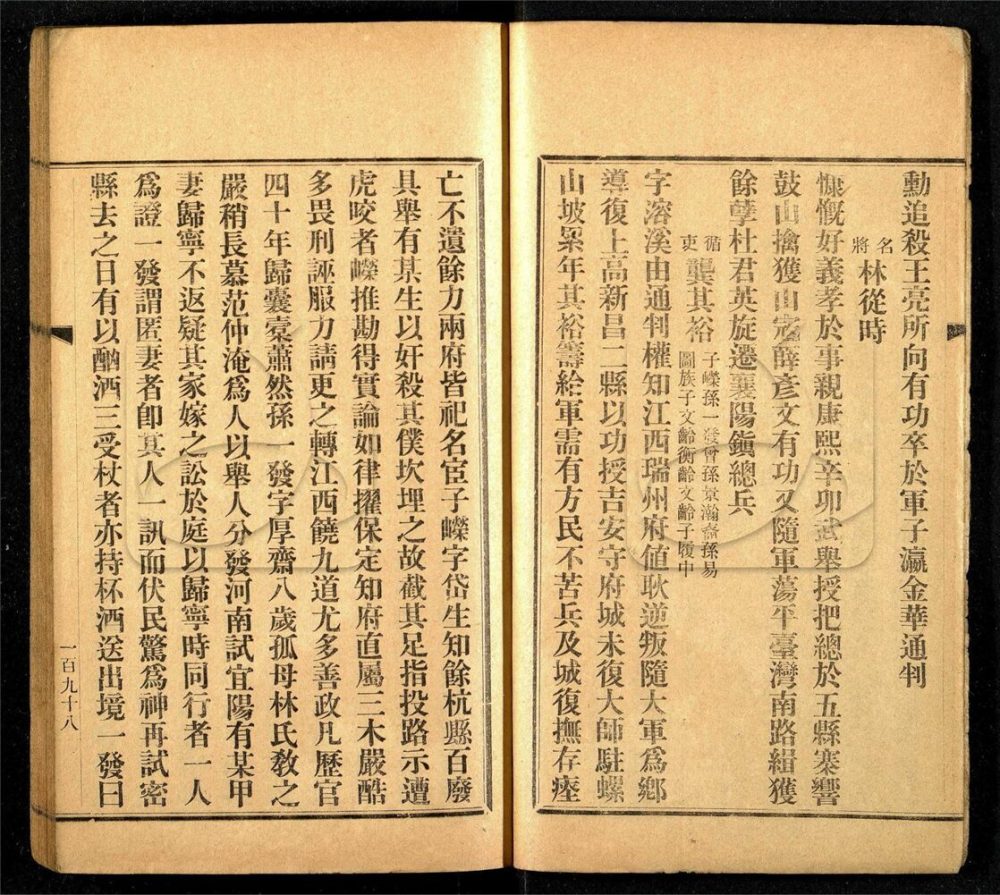 勳追殺王亮所向有功卒於軍子瀛金華通判
名將 林從時
慷慨好義孝於事親康熙辛卯武舉授把總於五縣寨響
鼓山擒獲山寇薛彥文有功又隨軍蕩平臺灣南路緝獲
餘孽杜君英旋遷襄陽鎭總兵
循吏 龔其裕 子嶸孫一發曾孫景瀚裔孫易圖族子文齡衡齡文齡子履中
字溶溪由通判權知江西瑞州府値耿逆叛隨大軍爲鄕
導復上高新昌二縣以功授吉安守府城未復大師駐螺
山坡累年其裕籌給軍需有方民不苦兵及城復撫存瘞
亡不遺餘力兩府皆祀名宦子嶸字岱生知餘杭縣百廢
具舉有某生以奸殺其僕坎埋之故截其足指投路示遭
虎咬者嶸推勘得實論如律擢保定知府直屬三木嚴酷
多畏刑誣服力請更之轉江西饒九道尤多善政凡歷官
四十年歸囊橐蕭然孫一發字厚齋八歲孤母林氏敎之
嚴稍長慕范仲淹爲人以舉人分發河南試宜陽有某甲
妻歸寧不返疑其家嫁之訟於庭以歸寧時同行者一人
爲證一發謂匿妻者卽其人一訊而伏民驚爲神再試密
縣去之日有以酗酒三受杖者亦持杯酒送出境一發曰
一百九十八